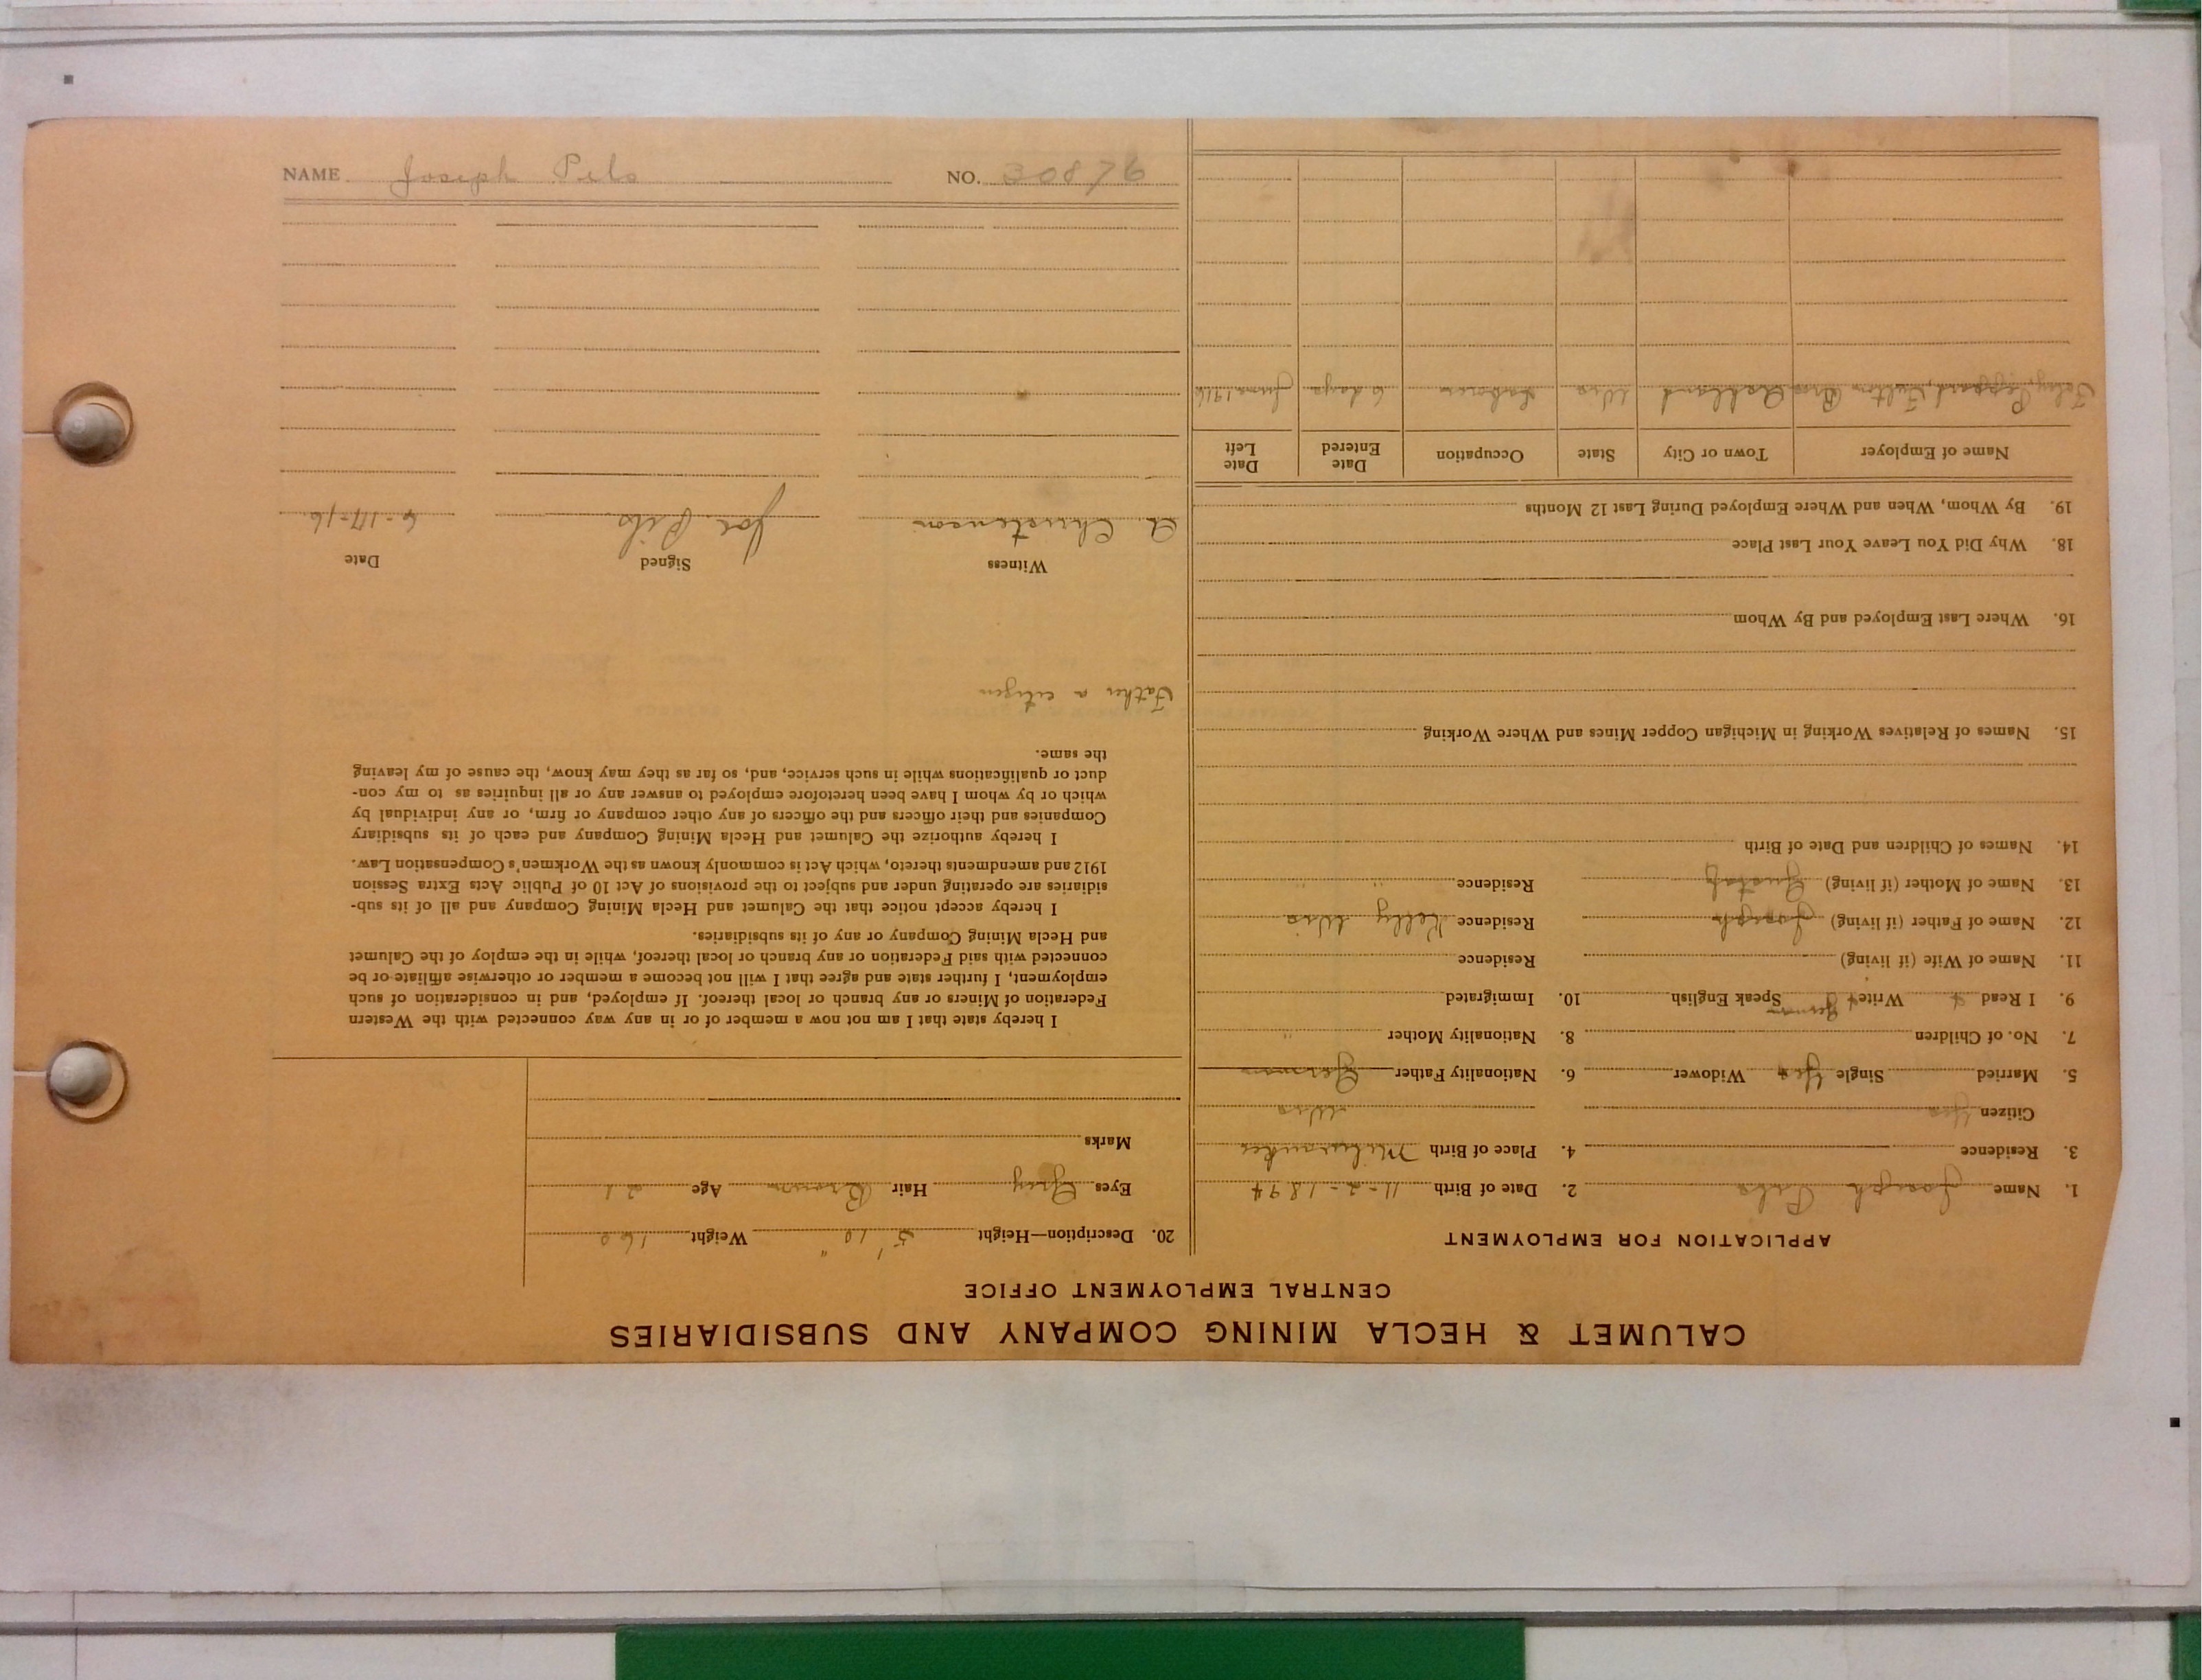 NAME Joseph Pils NO. 30876
CALUMET & HECLA MINING COMPANY AND SUBSIDIARIES
CENTRAL EMPLOYMENT OFFICE
APPLICATION FOR EMPLOYMENT
1. Name Joseph Pils 2. Date of Birth 11-2-1894
3. Residence 4. Place of Birth Milwaukee
Citizen Yes Wis
5. Married Single Yes Widower 6. Nationality Father German
7. No. of Children 8. Nationality Mother "
9. I Read Write Speak English 10. Immigrated
German
11. Name of Wife (if living) Residence
12. Name of Father (if living) Joseph Residence Kelly Wis
13. Name of Mother (if living) Residence " "
14. Names of Children and Date of Birth
15. Names of Relatives Working in Michigan Copper Mines and Where Working
16. Where Last Employed and By Whom
18. Why Did You Leave Your Last Place
19. By Whom, When and Where Employed During Last 12 Months
Name of Employer Town or City State Occupation Date Entered Date Left
Ashland Wis Laborer 6 days June 1916
20. Description—Height 5' 10" Weight 160
Eyes Grey Hair Brown Age 21
Marks
I hereby state that I am not now a member of or in any way connected with the Western
Federation of Miners or any branch or local thereof. If employed, and in consideration of such
employment, I further state and agree that I will not become a member or otherwise affiliate or be
connected with said Federation or any branch or local thereof, while in the employ of the Calumet
and Hecla Mining Company or any of its subsidiaries.
I hereby accept notice that the Calumet and Hecla Mining Company and all of its sub-
sidiaries are operating under and subject to the provisions of Act 10 of Public Acts Extra Session
1912 and amendments thereto, which Act is commonly known as the Workmen's Compensation Law.
I hereby authorize the Calumet and Hecla Mining Company and each of its subsidiary
Companies and their officers and the officers of any other company or firm, or any individual by
which or by whom I have been heretofore employed to answer any or all inquiries as to my con-
duct or qualifications while in such service, and, so far as they may know, the cause of my leaving
the same.
Father a citizen
Witness Signed Date
A Christensen Joe Pils 6-17-16